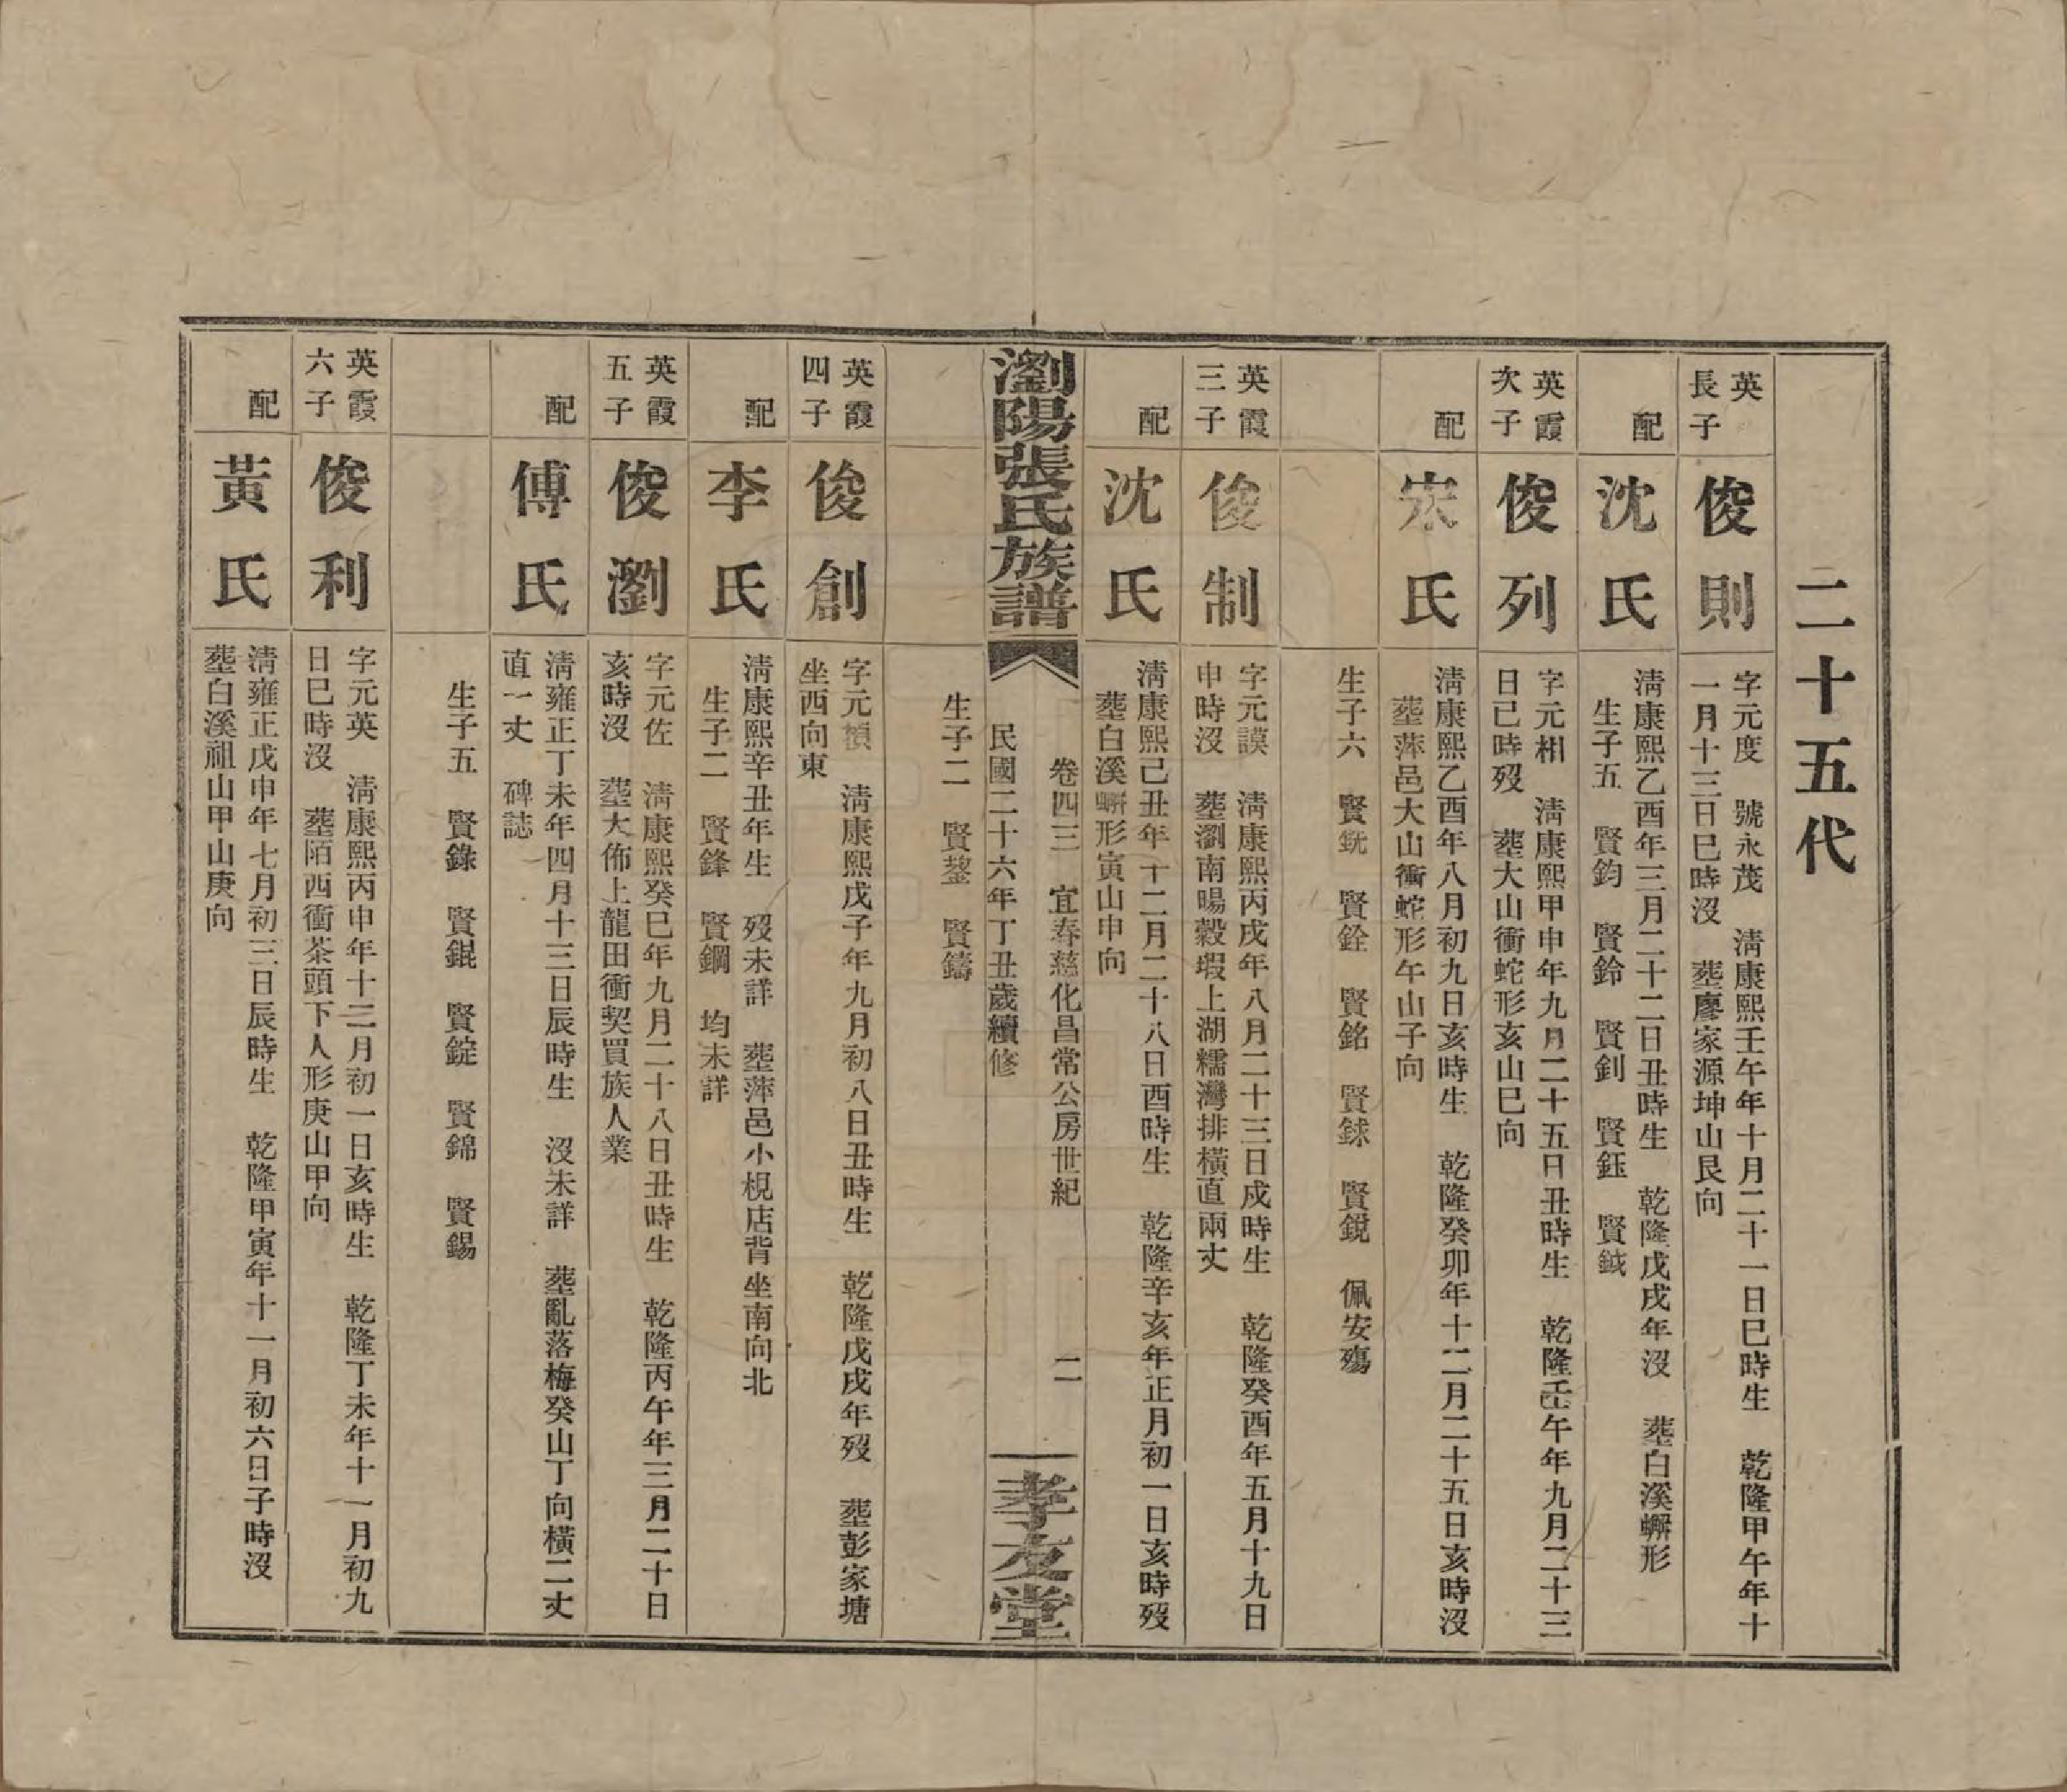 二十五代
英長子
俊則
字元度　號永茂　淸康熙壬午年十月二十一日巳時生　乾隆甲午年十
一月十三日巳時沒　塟廖家源坤山艮向
配
沈氏
淸康熙乙酉年三月二十二日丑時生　乾隆戊戌年沒　塟白溪螃形
生子五　賢鈞　賢鈴　賢釗　賢鈺　賢鉞
英霞次子
俊列
字元相　淸康熙甲申年九月二十五日丑時生　乾隆壬午年九月二十三
日巳時歿　塟大山衝蛇形亥山巳向
配
宋氏
淸康熙乙酉年八月初九日亥時生　乾隆癸卯年十二月二十五日亥時沒
塟萍邑大山衝蛇形午山子向
生子六　賢銃　賢銓　賢銘　賢銶　賢銳　佩安殤
英霞三子
俊制
字元謨　淸康熙丙戌年八月二十三日戌時生　乾隆癸酉年五月十九日
申時沒　塟瀏南暘穀塅上湖糯灣排橫直兩丈
配
沈氏
淸康熙己丑年十二月二十八日酉時生　乾隆辛亥年正月初一日亥時歿
塟白溪螃形寅山申向
瀏陽張氏族譜
卷四三　宜春慈化昌常公房世紀　二
民國二十六年丁丑歲續修
孝友堂
生子二　賢鋆　賢鑄
英霞四子
俊創
字元禎　淸康熙戊子年九月初八日丑時生　乾隆戊戌年歿　塟彭家塘
坐西向東
配
李氏
淸康熙辛丑年生　歿未詳　塟萍邑小梘店背坐南向北
生子二　賢鋒　賢鋼　均未詳
英霞五子
俊瀏
字元佐　淸康熙癸巳年九月二十八日丑時生　乾隆丙午年三月二十日
亥時沒　塟大佈上龍田衝契買族人業
配
傅氏
淸雍正丁未年四月十三日辰時生　沒未詳　塟亂落梅癸山丁向橫二丈
直一丈　碑誌
生子五　賢錄　賢錕　賢錠　賢錦　賢錫
英霞六子
俊利
字元英　淸康熙丙申年十二月初一日亥時生　乾隆丁未年十一月初九
日巳時沒　塟陌西衝茶頭下人形庚山甲向
配
黃氏
淸雍正戊申年七月初三日辰時生　乾隆甲寅年十一月初六日子時沒
塟白溪祖山甲山庚向